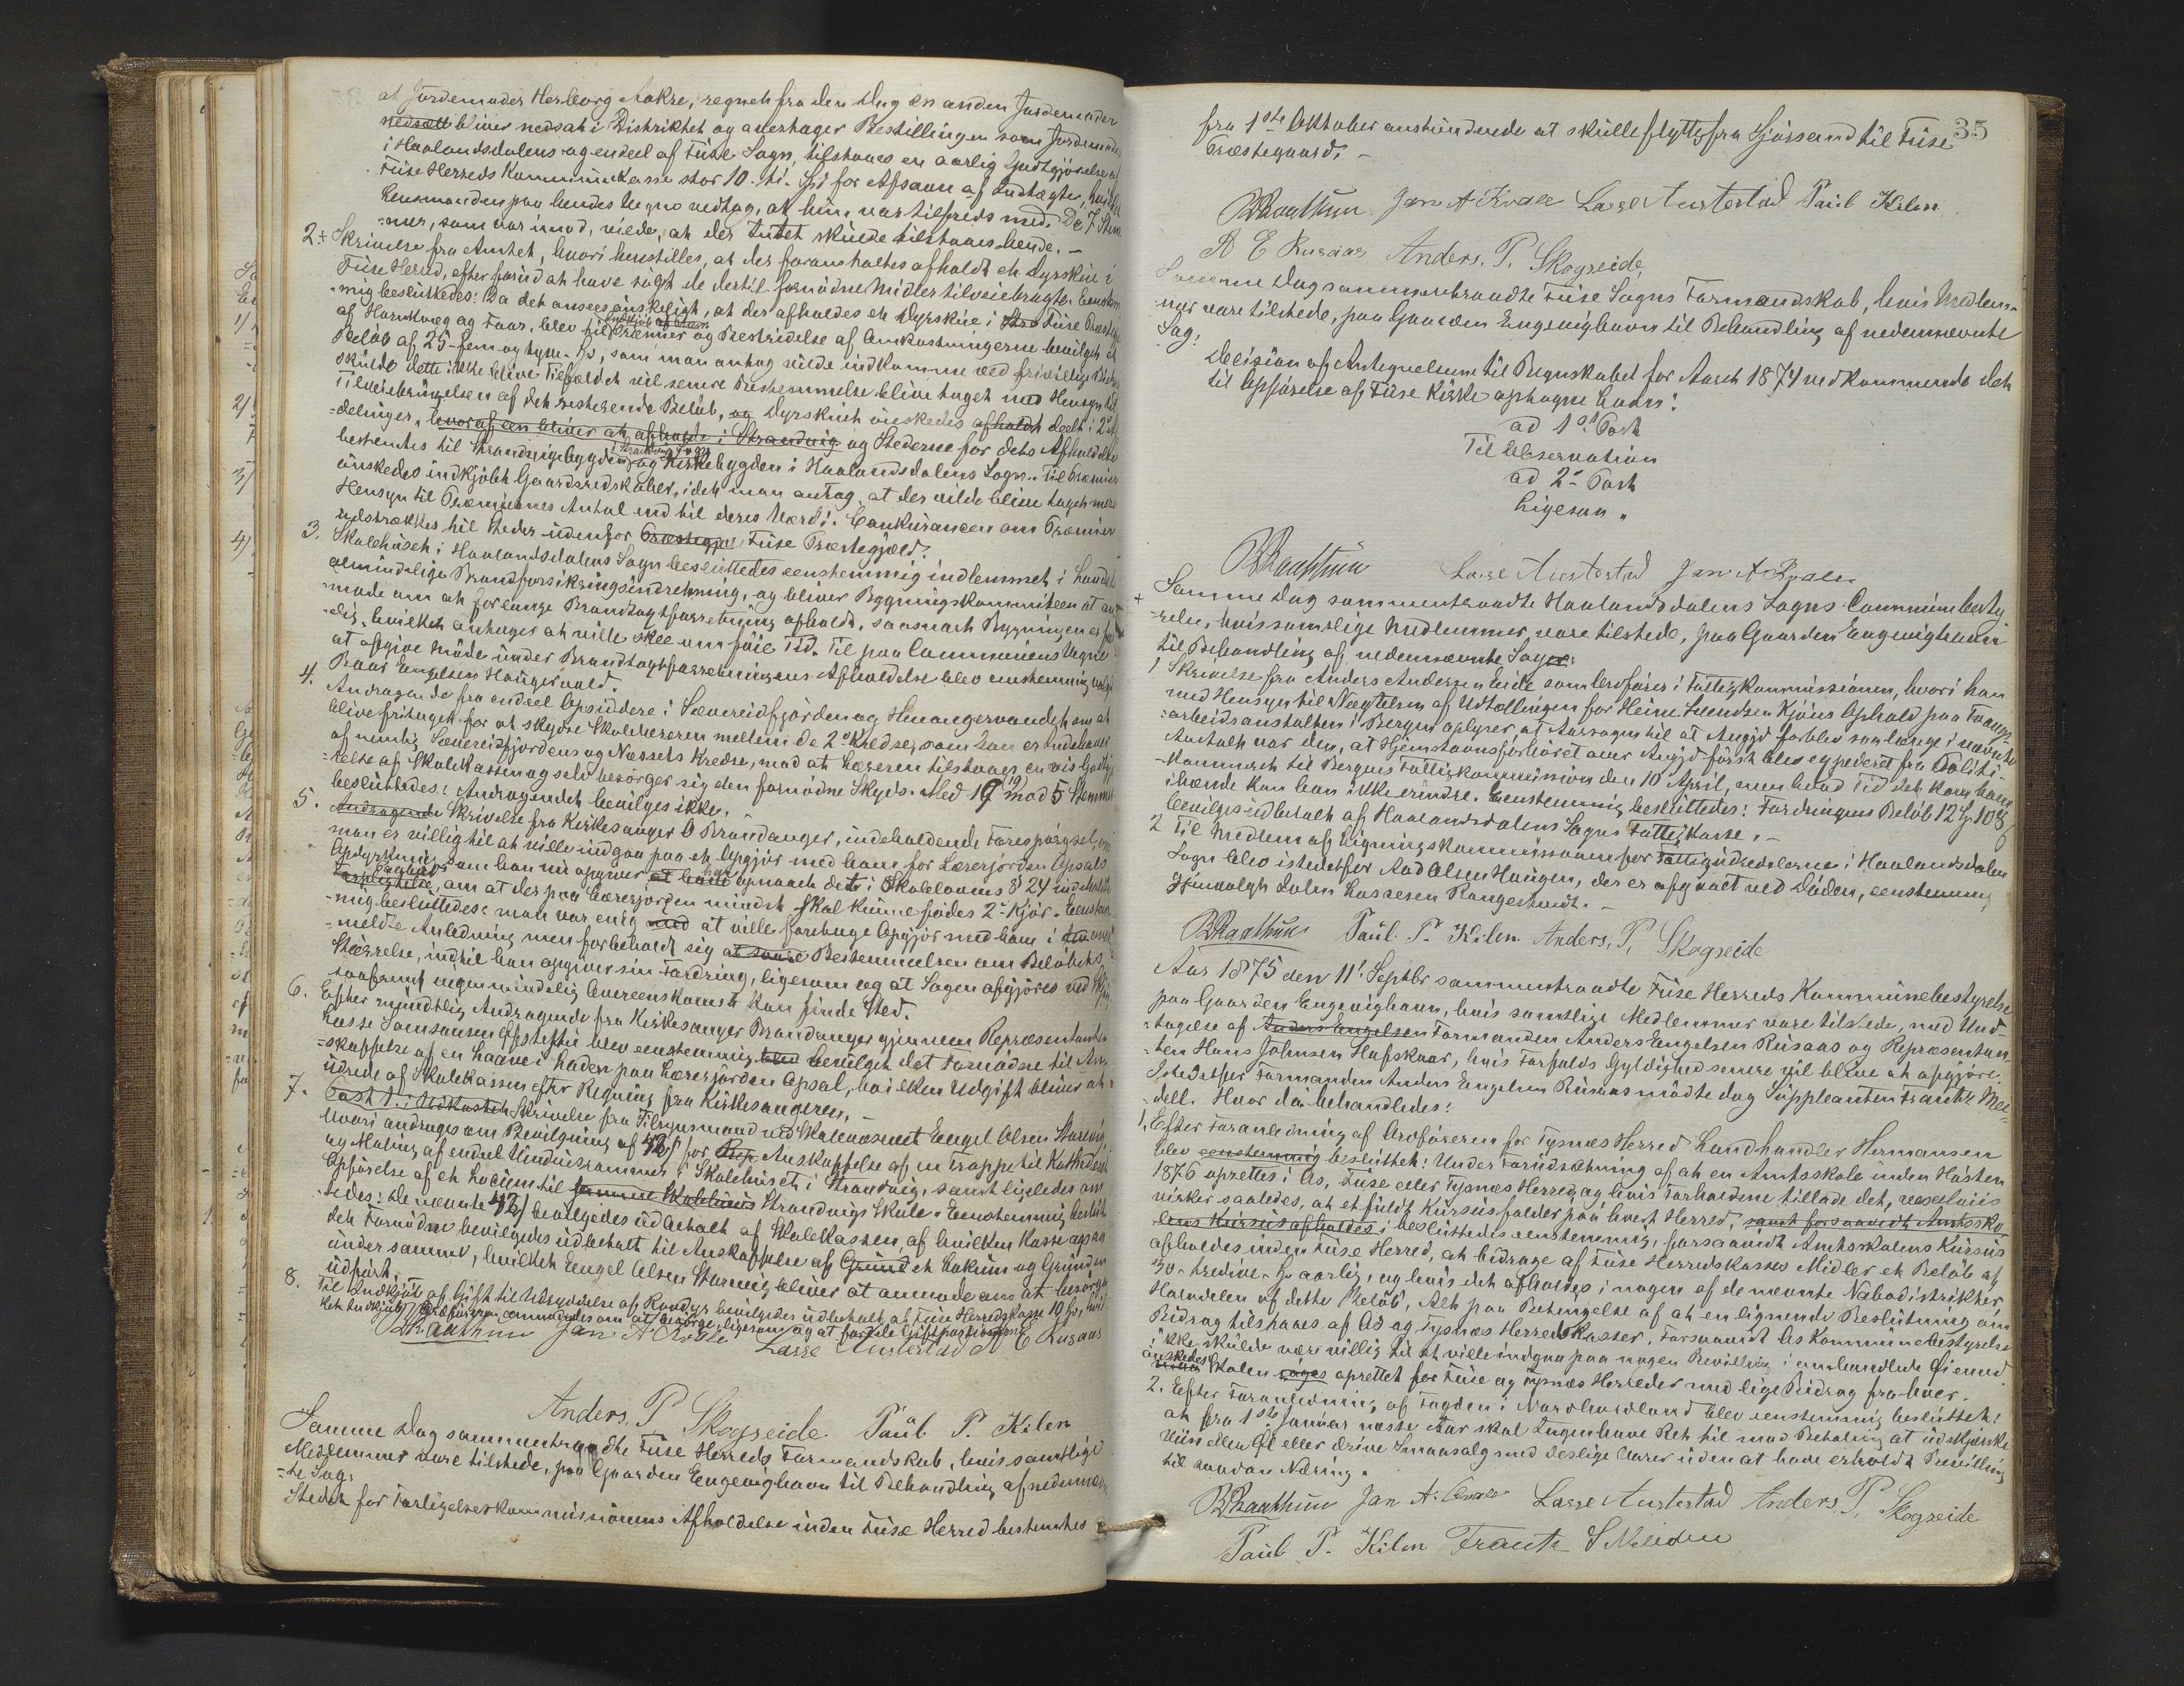 at Jordemoder Herborg Aakre, regnet fra den Dag en anden Jordemoder
nedsætt bliver nedsat i Distriktet og overtager Bestillingen som Jordemoder
i Haalandsdalens og endeel af Fuse Sogn, tilstaaes en aarlig Godtgjørelse af
Fuse Herreds Kommunekasse stor 10 ti Spd for Afsavn af Indtægter, hvilket
Lensmanden paa hendes Vegne vedtog, at hun var tilfreds med. De 7 Stem-
mer, som var imod, vilde, at der Intet skulde tilstaaes hende. –
2. Skrivelse fra Amtet, hvori henstilles, at der foranstaltes afholdt et Dyrskue i
Fuse Herred, efter forud at have søgt de dertil fornødne Midler tilveiebragte. Eenstem-
mig besluttedes: Da det ansees ønskeligt, at der afholdes et Dyrskue i Fuse Præstegj.
af Hornkvæg og Faar, blev til Præmier og Bestridelse af Omkostningerne bevilget et
Beløb af 25 fem og tyve Spd, som man antog vilde indkomme ved frivillige Bidrag
skulde dette ikke blive Tilfældet vil senere Bestemmelse blive taget med Hensyn til
Tilveiebringelsen af det resterende Beløb, og Dyrskuet ønskedes afholdt deelt i 2de Af-
delinger, hvoraf en bliver at afholde i Strandvig og Stederne for dets Afholdelse
bestemtes til Strandvigsbygden i Strandvig Sogn og Kirkebygden i Haalandsdalens Sogn. Til Præmier
ønskedes indkjøbt Gaardsredskaber, idet man antog, at der vilde blive taget mere
Hensyn til Præmiernes Antal end til deres Værdi. Conkurancen om Præmier
udstrækkes til Steder udenfor Præstegje Fuse Præstegjæld.
3. Skolehuset i Haalandsdalens Sogn besluttedes eenstemmig indlemmet i Landets
almindelige Brandforsikringsindretning, og bliver Bygningskommiteen at an-
mode om at forlange Brandtagtsforretning afholdt, saasnart Bygningen er fær-
dig, hvilket antages at ville skee om føie Tid. Til paa Communens Vegne
at afgive Møde under Brandtagtsforretningens Afholdelse blev eenstemmig valgt
Baar Engelsen Haugervold.
4. Andragende fra endeel Opsiddere i Sævereidfjorden og Henangervandet om at
blive fritaget for at skydse Skolelæreren mellem de 2de Kredse, som han er Indehaver
af nemlig Sævereidfjordens og Nessets Kredse, mod at Læreren tilstaaes en vis Godtgj-
relse af Skolekassen og selv besørger sig den fornødne Skyds. Med 19 (19) mod 5 Stemmer
besluttedes: Andragendet bevilges ikke. –
5. Andragende Skrivelse fra Kirkesanger O Brandanger, indeholdende Forespørgsel, om
man er villig til at ville indgaa paa et Opgjør med ham for Lærerjorden Opsals
Opdyrkning, som han nu opgiver at have havt opnaaet det i Skolelovens § 24 indeholdte
Forpligtelse, om at der paa Lærerjorden mindst skal kunne fødes 2de Kjør. Eenstem-
mig besluttedes: man var enig med at ville foretage Opgjør med ham i om-
meldte Anledning, men forbeholdt sig at tage Bestemmelsen om Beløbets
Størrelse, indtil han opgiver sin Fordring, ligesom og at Sagen afgjøres ved Skjøn
saafremt ingen mindelig Overeenskomst kan finde Sted.
6. Efter mundtlig Andragende fra Kirkesanger Brandanger gjennem Repræsentanten
Lasse Samsonsen blev eenstemmig blev bevilget det Fornødne til An-
skaffelse af en Laave i Laden paa Lærerjorden Opsal, hvilken Udgift bliver at
udrede af Skolekassen efter Regning fra Kirkesangeren. –
7. Post 1. i Udkastet Skrivelse fra Tilsynsmand ved Skolevæsenet Engel Olsen Storevig
hvori andrages om Bevilgning af 42 β for Rep Anskaffelse af en Trappe til Kathedret
og Maling af endeel Vindusrammer i Skolehuset i Strandvig, samt ligeledes om
Opførelse af et Locum til samme Skolehuus Strandvigs Skole. Eenstemmig beslut-
tedes: De nævnte 42 β bevilgedes udbetalt af Skolekassen, af hvilken Kasse ogsaa
det Fornødne bevilgedes udbetalt til Anskaffelse af Grund et Lokum og Grunden
under samme, hvilket Engel Olsen Storevig bliver at anmode om at besørge
udført.
8. Til Indkjøb af Gift til Udryddelse af Rovdyr bevilgedes udbetalt af Fuse Herredskasse 10 Spd, hvil-
ket Indkjøb Ordføreren anmodedes om at besørge, ligesom og at fordele Giftportionerne
BRaathun Jan A Kvale Lasse Austestad A E Rusaas
Anders. P. Skogseide Paul P. Kilen
Samme Dag sammentraadte Fuse Herreds Formandskab, hvis samtlige
Medlemmer vare tilstede, paa Gaarden Engevighavn til Behandling af nedennævn-
te Sag:
Stedet for Forligelseskommissionens Afholdelse inden Fuse Herred bestemtes
35
fra 1ste Oktober anstundende at skulle flyttes fra Sjøsand til Fuse
Præstegaard. –
BRaathun Jan A Kvale Lasse Austestad Paul Kilen
A E Rusaas Anders. P. Skogseide
Samme Dag sammentraadte Fuse Sogns Formandskab, hvis Medlem-
mer vare tilstede, paa Gaarden Engevighavn til Behandling af nedennævnte
Sag:
Decision af Antegnelserne til Regnskabet for Aaret 1874 vedkommende det
til Opførelse af Fuse Kirke optagne Laan:
ad 1ste Post
Til Observation
ad 2den Post
Ligesaa.
BRaathun Lasse Austestad Jan A Kvale
Samme Dag sammentraadte Haalandsdalens Sogns Communebesty-
relse, hvis samtlige Medlemmer, vare tilstede, paa Gaarden Engevighavn
til Behandling af nedennævnte Sager:
1 Skrivelse fra Anders Andersen Eide som Ordfører i Fattigkommissionen, hvori han
med Hensyn til Nægtelsen af Udtællingen for Heine Svendsen Kjøns Ophold paa Tvangs-
arbeidsanstalten i Bergen oplyser, at Aarsagen til at Angjd forblev saa længe i nævnte
Anstalt var den, at Hjemstavnsforhøret over Angjd først blev expederet fra Politi-
kammeret til Bergens Fattigkommission den 10 April, men hvad Tid det kom ham
ihænde kan han ikke erindre. Eenstemmig besluttedes: Fordringens Beløb 12 Spd 108 β
bevilges udbetalt af Haalandsdalens Sogns Fattigkasse. –
2 Til Medlem af Ligningskommissionen for Fattigudredelserne i Haalandsdalen
Sogn blev istedetfor Aad Olsen Haugen, der er afgaaet ved Døden, eenstemmig
gjenvalgt Lassesen Rangestvedt. –
BRaathun Paul P. Kilen Anders. P. Skogseide
Aar 1875 den 11te Septbr sammentraadte Fuse Herreds Kommunebestyrelse
paa Gaarden Engevighavn, hvis samtlige Medlemmer vare tilstede, med Und-
tagelse af Anders Engelsen Formanden Anders Engelsen Rusaas og Repræsentan-
ten Hans Johnsen Hafskaar, hvis Forfalds Gyldighed senere vil blive at afgjøre.
Istedetfor Formanden Anders Engelsen Rusaas mødte dog Suppleanten Frantz Mel-
dell. Hvor da behandledes:
1. Efter Foranledning af Ordføreren for Tysnæs Herred Landhandler Hermansen
blev eenstemmig besluttet: Under Forudsætning af at en Amtsskole inden Høsten
1876 oprettes i Os, Fuse eller Tysnæs Herred, og hvis Forholdene tillade det, vexelviis
virker saaledes, at et fuldt Kursus falder paa hvert Herred, samt forsaavidt Amtssko-
lens Kursus afholdes i besluttedes eenstemmig, forsaavidt Amtsskolens Kursus
afholdes inden Fuse Herred, at bidrage af Fuse Herredskasses Midler et Beløb af
30 tredive Spd aarlig, og hvis det afholdes i nogen af de nævnte Nabodistrikter
Halvdelen af dette Beløb, Alt paa Betingelse af at en lignende Beslutning om
Bidrag tilstaaes af Os og Tysnæs Herredskasser. Forsaavidt Os Kommunebestyrelse
ikke skulde være villig til at ville indgaa paa nogen Bevilling i omhandlede Øiemed
ønskedes Skolen søges oprettet for Fuse og Tysnæs Herreder med lige Bidrag fra hver.
2. Efter Foranledning af Fogden i Nordhordland blev eenstemmig besluttet:
at fra 1ste Januar næste Aar skal Ingen have Ret til mod Betaling at udskjænke
Viin eller Øl eller drive Smaasalg med deslige Varer uden at have erholdt Bevilling
til saadan Næring.
BRaathun Jan A. Kvale Lasse Austestad Anders. P. Skogseide
Paul P. Kilen Frantz